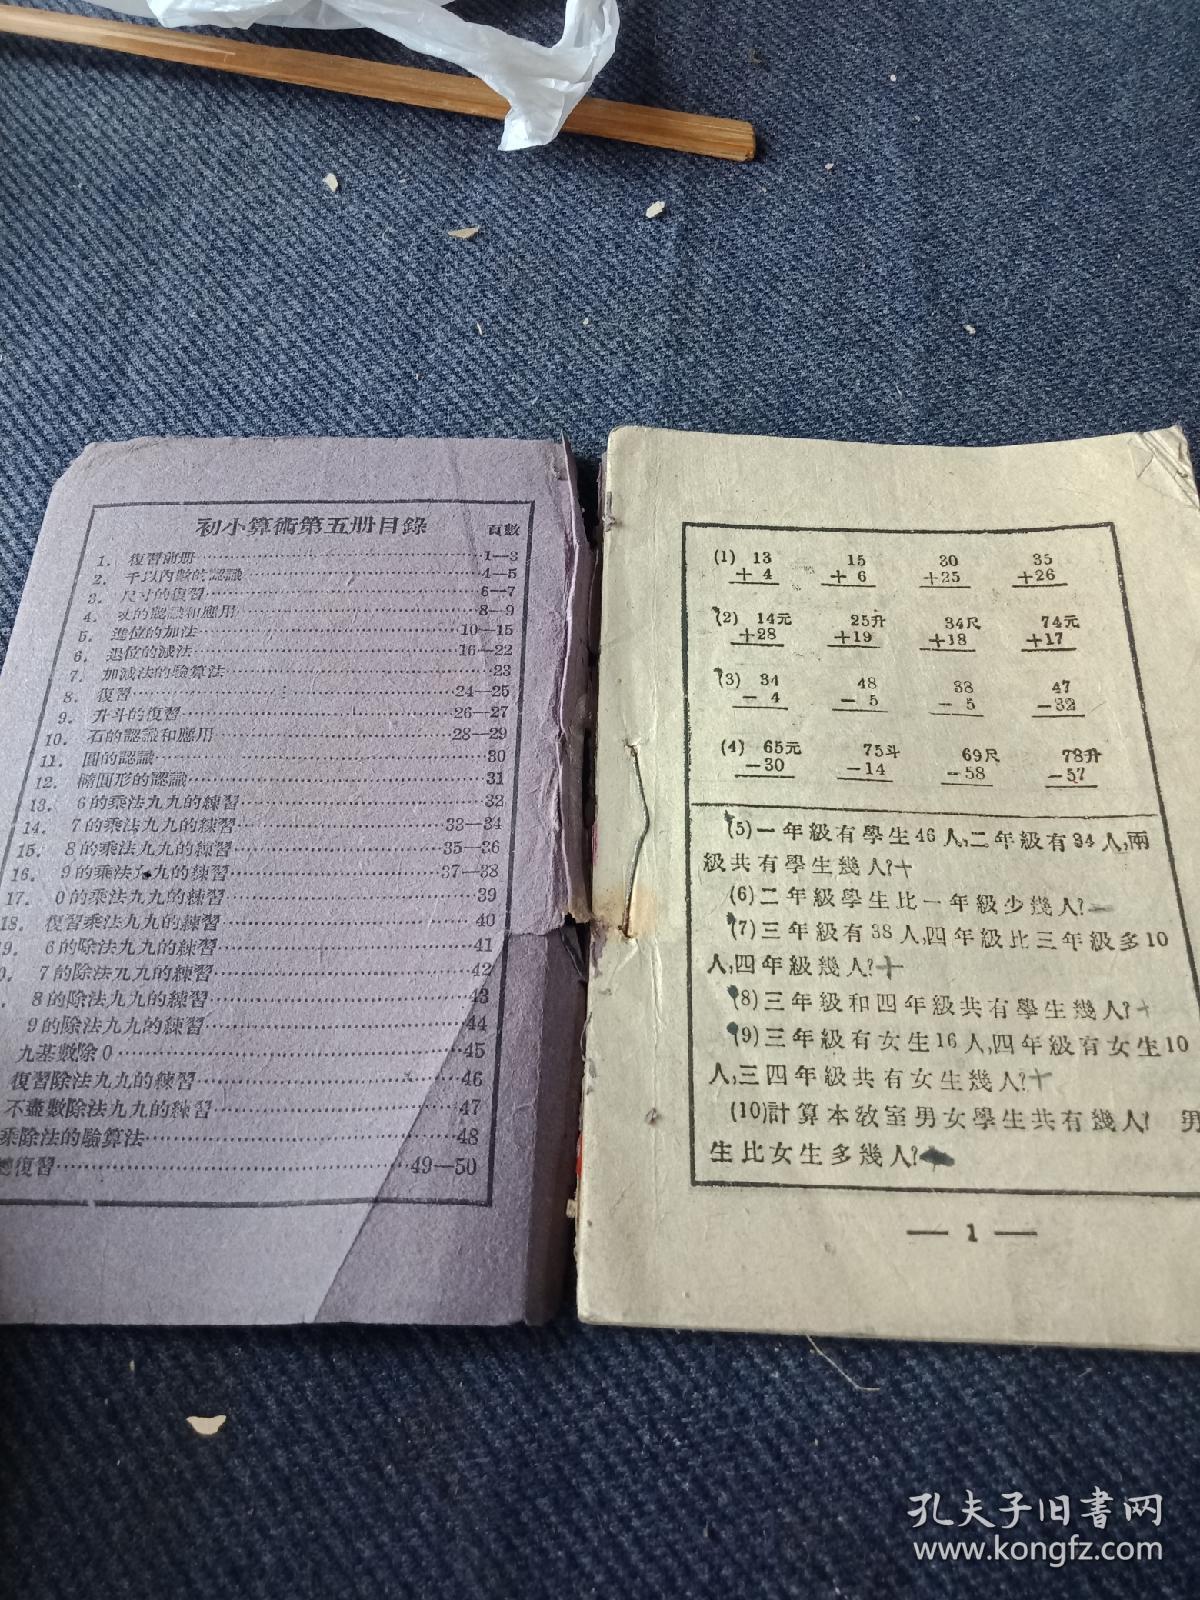 初小算術第五册目錄 頁數
1. 復習前册 1—3
2. 千以內數的認識 4—5
3. 尺寸的復習 6—7
4. 丈的認識和應用 8—9
5. 進位的加法 10—15
6. 退位的減法 16—22
7. 加減法的驗算法 23
8. 復習 24—25
9. 升斗的復習 26—27
10. 石的認識和應用 28—29
11. 圓的認識 30
12. 橢圓形的認識 31
13. 6的乘法九九的練習 32
14. 7的乘法九九的練習 33—34
15. 8的乘法九九的練習 35—36
16. 9的乘法九九的練習 37—38
17. 0的乘法九九的練習 39
18. 復習乘法九九的練習 40
9. 6的除法九九的練習 41
7的除法九九的練習 42
8的除法九九的練習 43
9的除法九九的練習 44
九基數除0 45
復習除法九九的練習 46
不盡數除法九九的練習 47
乘除法的驗算法 48
總復習 49—50
(1) 13 15 30 35
+ 4 + 6 +25 +26
(2) 14元 25升 34尺 74元
+28 +19 +18 +17
(3) 34 48 38 47
- 4 - 5 - 5 -32
(4) 65元 75斗 69尺 78升
-30 -14 -58 -57
(5)一年級有學生46人,二年級有34人,兩
級共有學生幾人?+
(6)二年級學生比一年級少幾人?—
(7)三年級有38人,四年級比三年級多10
人,四年級幾人?+
(8)三年級和四年級共有學生幾人?+
(9)三年級有女生16人,四年級有女生10
人,三四年級共有女生幾人?+
(10)計算本教室男女學生共有幾人? 男
生比女生多幾人?
— 1 —
孔夫子旧書网
www.kongfz.com